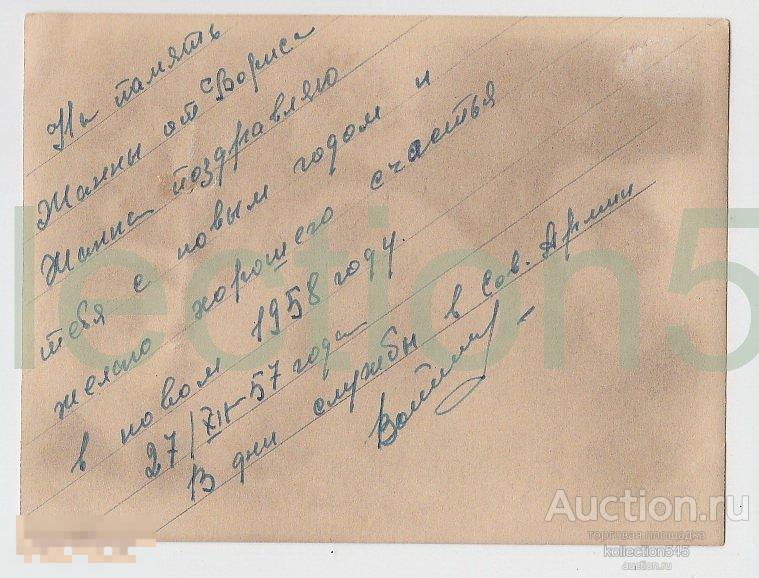 На память
Жанны от Бориса
Жанна поздравляю
тебя с новым годом и
желаю хорошего счастья
в новом 1958 году.
27/XII-57 года
В дни службы в Сов. Армии
lection5
Auction.ru
торговая площадка
kollection545
auction.ru